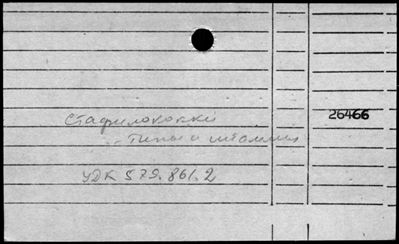 Стафилококки 26466
-- типы и штаммы
УДК 579.861.2